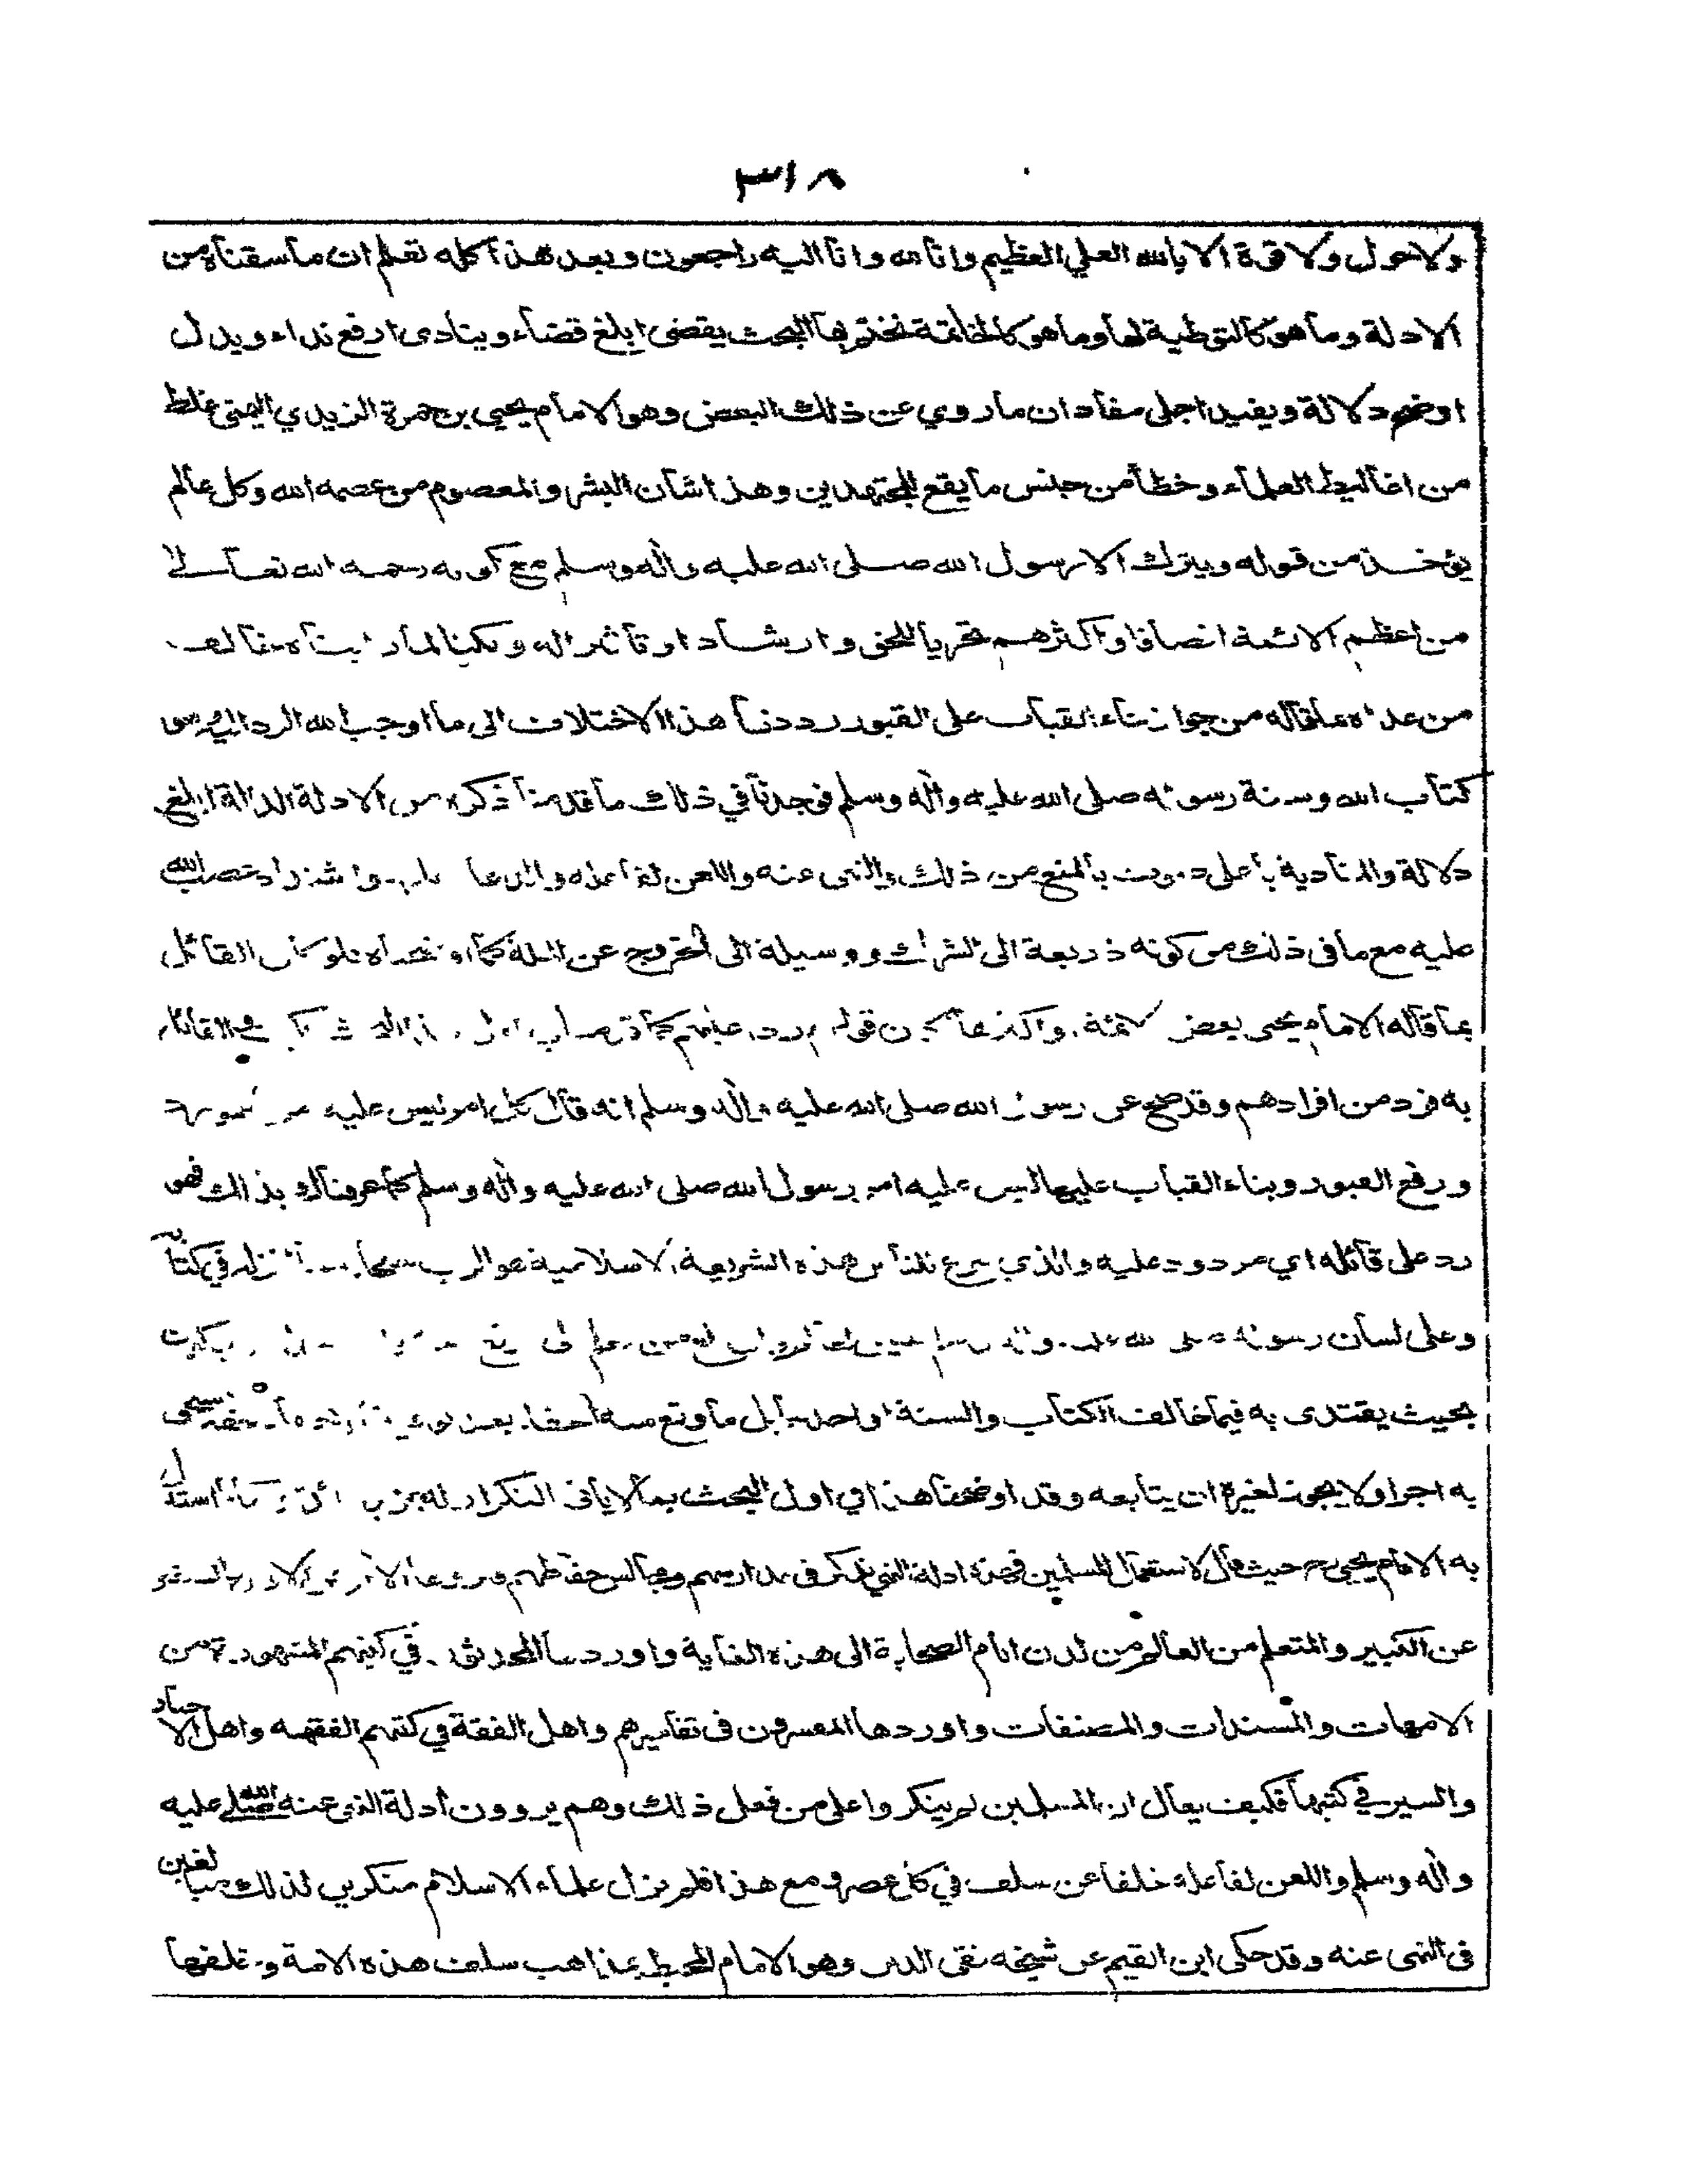 ٣١٨
ولا حول ولا قوة الا بالله العلي العظيم وانا لله وانا اليه راجعون وبعد هذا كله تعلم ان ما سقناه من
الادلة وما هو كالتوطية لها وما هو كالخاتمة نختم بها البحث يقضى ابلغ قضاء وينادى ارفع نداء ويدل
اوضح دلالة ويفيد اجلى مفاد ان ما روي عن ذلك البعض وهو الامام يحيى بن حمزة الزيدي اليمنى غلط
من اغاليط العلماء وخطأ من جنس ما يقع للمجتهدين وهذا شأن البشر والمعصوم من عصمه الله وكل عالم
يؤخذ من قوله ويترك الا رسول الله صلى الله عليه واله وسلم مع كونه رحمه الله تعالى
من اعظم الائمة انصافا واكثرهم تحريا للحق وارشادا وتأثيرا له ولكنا لما رأيناه خالف
من عداه بما قاله من جواز بناء القباب على القبور رددنا هذا الاختلاف الى ما اوجب الله الرد اليه وهو
كتاب الله وسنة رسوله صلى الله عليه واله وسلم فوجدنا في ذلك ما قدمنا ذكره من الادلة الدالة ابلغ
دلالة والمنادية باعلى صوت بالمنع من ذلك والنهى عنه واللعن لفاعله والدعاء عليه واشتداد غضب الله
عليه مع ما فى ذلك من كونه ذريعة الى الشرك ووسيلة الى الخروج عن الملة كما اوضحناه فلو كان القائل
بما قاله الامام يحيى بعض الائمة او اكثرها لكان قولهم ردا عليهم كما القائل
به فرد من افرادهم وقد صح عن رسول الله صلى الله عليه واله وسلم انه قال كل امر ليس عليه امرنا فهو رد
ورفع القبور وبناء القباب عليها ليس عليه امر رسول الله صلى الله عليه واله وسلم كما عرفناك بذلك فهو
رد على قائله اي مردود عليه والذي شرع للناس هذه الشريعة الاسلامية هو الرب سبحانه بما انزله في كتابه
وعلى لسان رسوله صلى الله عليه ان يكون
بحيث يقتدى به فيما خالف الكتاب والسنة او احدهما بل ما وقع منه الخطأ بعد يستحق
به اجرا ولا يجوز لغيره ان يتابعه وقد اوضحنا هذا في اول البحث بما لا ياتى التكرار له بمزيد استدل
به الامام يحيى ح حيث قال لاستعمال المسلمين
عن الكبير والمتعلم من العالم من لدن ايام الصحابة الى هذه الغاية واوردها المحدثون في كتبهم المشهورة من
الامهات والمسندات والمصنفات واوردها المفسرون فى تفاسيرهم واهل الفقة في كتبهم الفقهيه واهل الاخبار
والسير في كتبها فكيف يقال ان المسلمين لم ينكروا على من فعل ذلك وهم يروون ادلة النهى عنه صلى الله عليه
واله وسلم واللعن لفاعله خلفا عن سلف في كل عصر ومع هذا فلم يزل علماء الاسلام منكرين لذلك مبالغين
فى النهى عنه وقد حكى ابن القيم عن شيخه تقى الدين وهو الامام المحيط بمذاهب سلف هذه الامة وخلفها